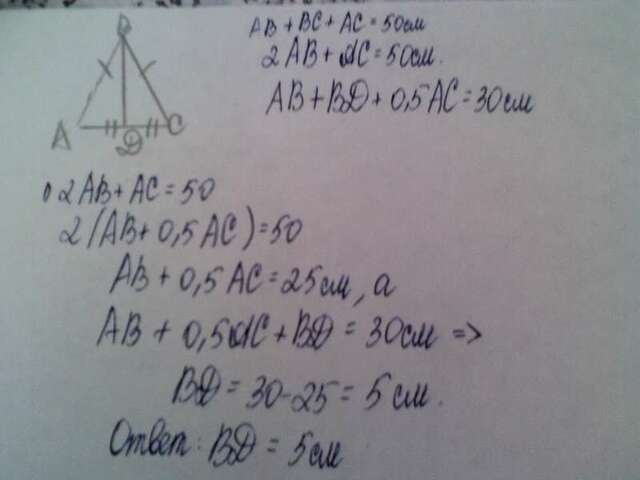 B
A
D
C
AB + BC + AC = 50см
2AB + AC = 50см.
AB + BD + 0,5AC = 30см
2AB + AC = 50
2(AB + 0,5AC) = 50
AB + 0,5AC = 25см, а
AB + 0,5AC + BD = 30см =>
BD = 30-25 = 5см.
Ответ: BD = 5см